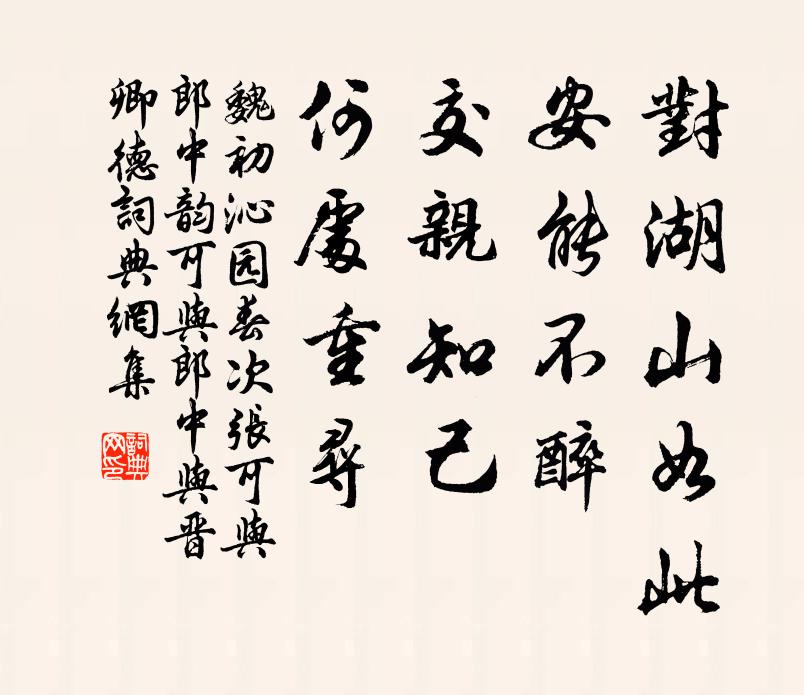 對湖山如此
安能不醉
交親知己
何處重尋
魏初沁园春次張可與
郎中韵可與郎中與晋
卿德詞典網集
詞典网印